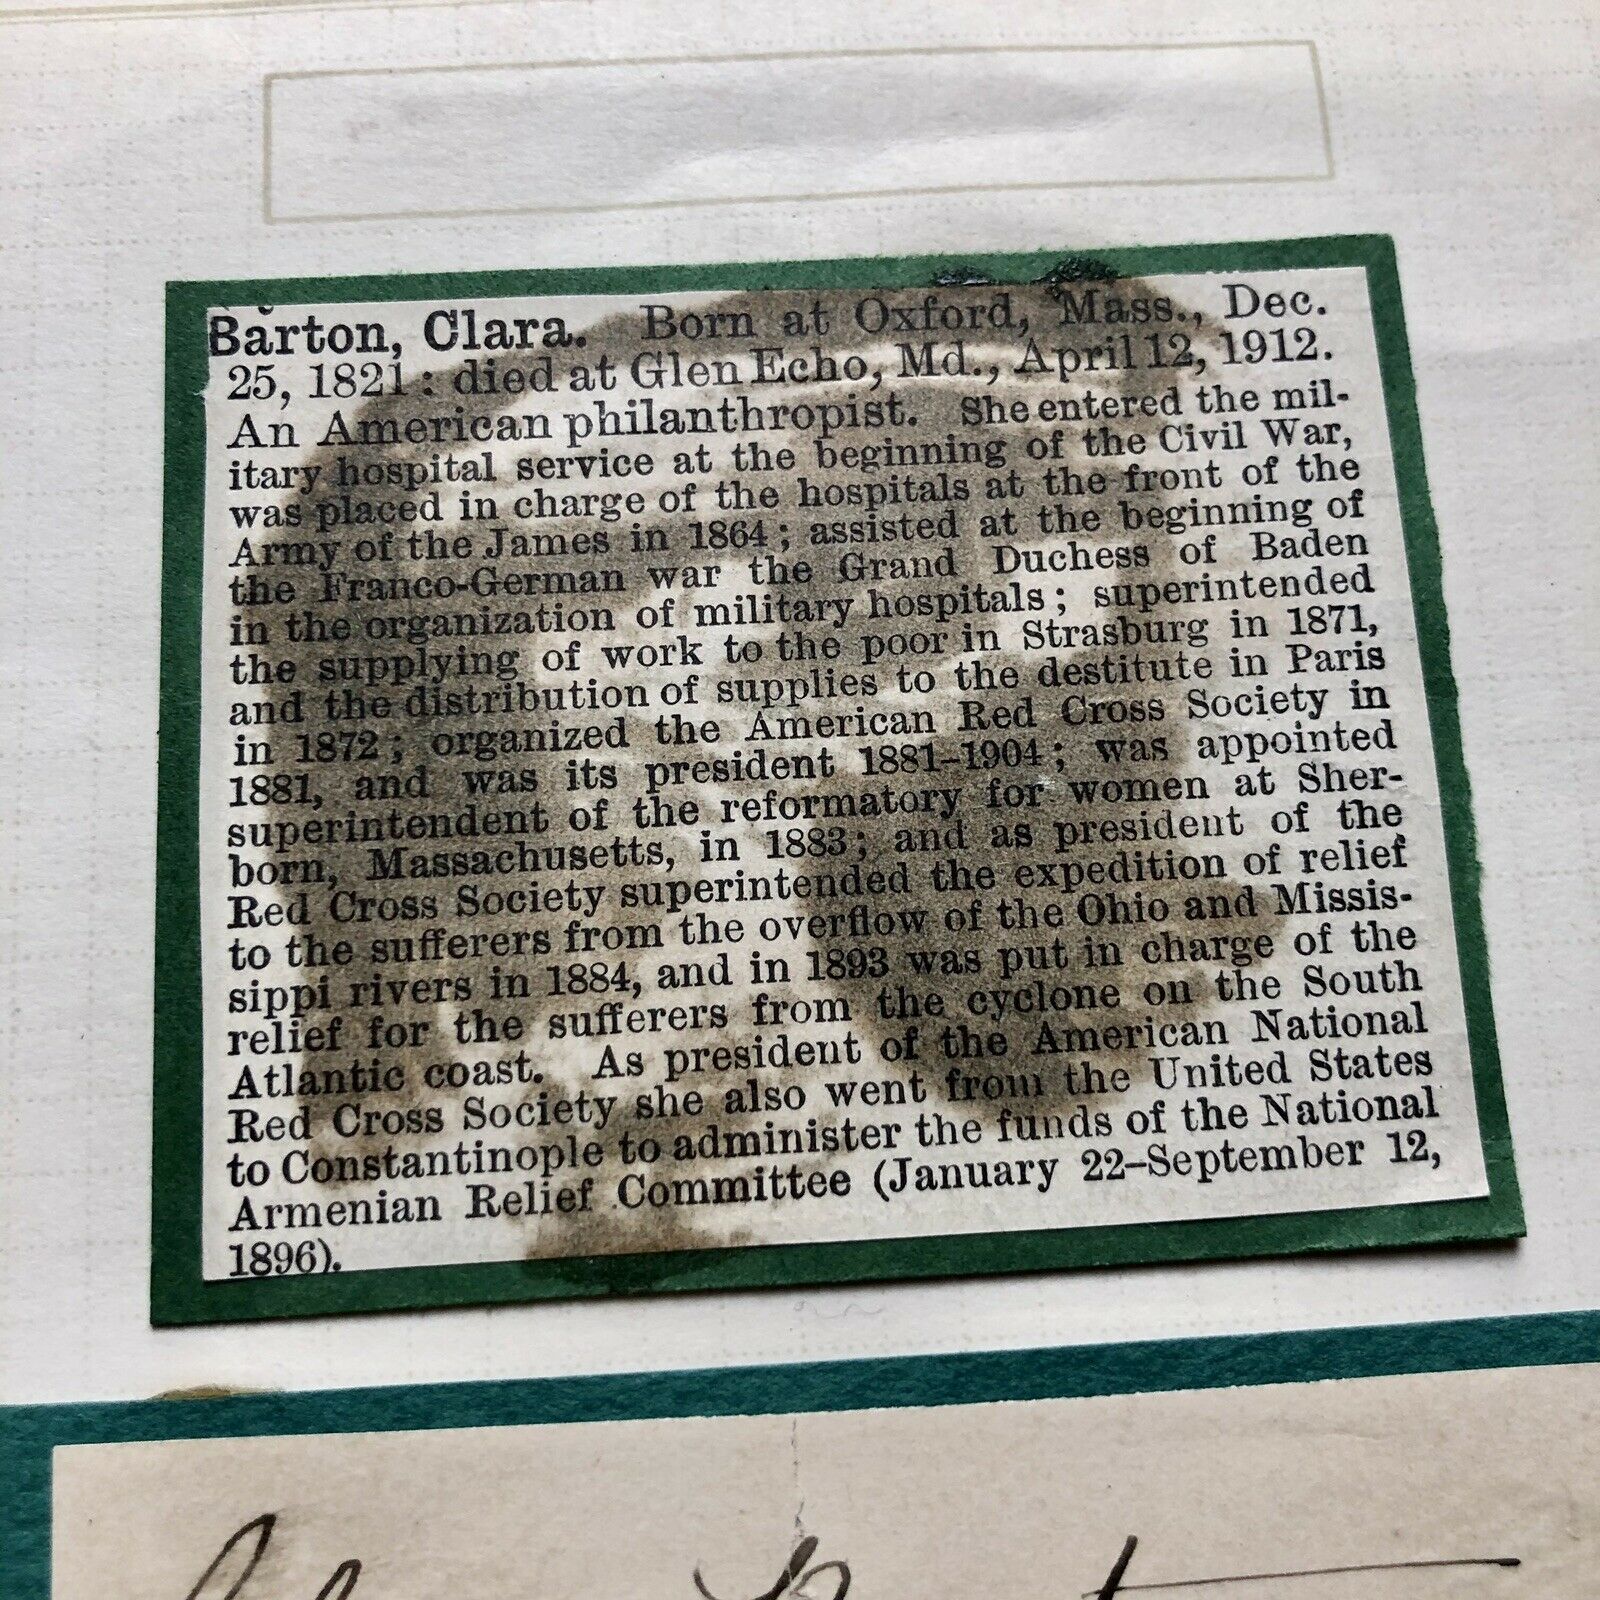 Barton, Clara. Born at Oxford, Mass., Dec.
25, 1821: died at Glen Echo, Md., April 12, 1912.
An American philanthropist. She entered the mil-
itary hospital service at the beginning of the Civil War,
was placed in charge of the hospitals at the front of the
Army of the James in 1864; assisted at the beginning of
the Franco-German war the Grand Duchess of Baden
in the organization of military hospitals; superintended
the supplying of work to the poor in Strasburg in 1871,
and the distribution of supplies to the destitute in Paris
in 1872; organized the American Red Cross Society in
1881, and was its president 1881–1904; was appointed
superintendent of the reformatory for women at Sher-
born, Massachusetts, in 1883; and as president of the
Red Cross Society superintended the expedition of relief
to the sufferers from the overflow of the Ohio and Missis-
sippi rivers in 1884, and in 1893 was put in charge of the
relief for the sufferers from the cyclone on the South
Atlantic coast. As president of the American National
Red Cross Society she also went from the United States
to Constantinople to administer the funds of the National
Armenian Relief Committee (January 22–September 12,
1896).